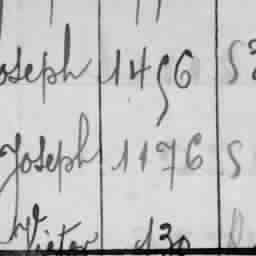 Joseph 1496 S
Joseph 1176 S
Victor 130